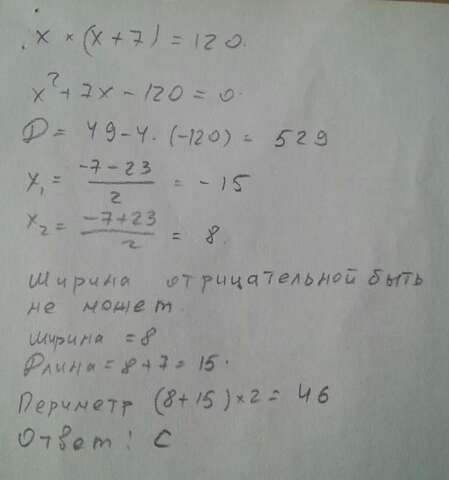 x × (x + 7) = 120.
x² + 7x - 120 = 0.
D = 49 - 4 · (-120) = 529
x₁ = (-7 - 23)/2 = -15
x₂ = (-7 + 23)/2 = 8.
Ширина отрицательной быть
не может.
Ширина = 8
Длина = 8 + 7 = 15.
Периметр (8 + 15) × 2 = 46
Ответ: C